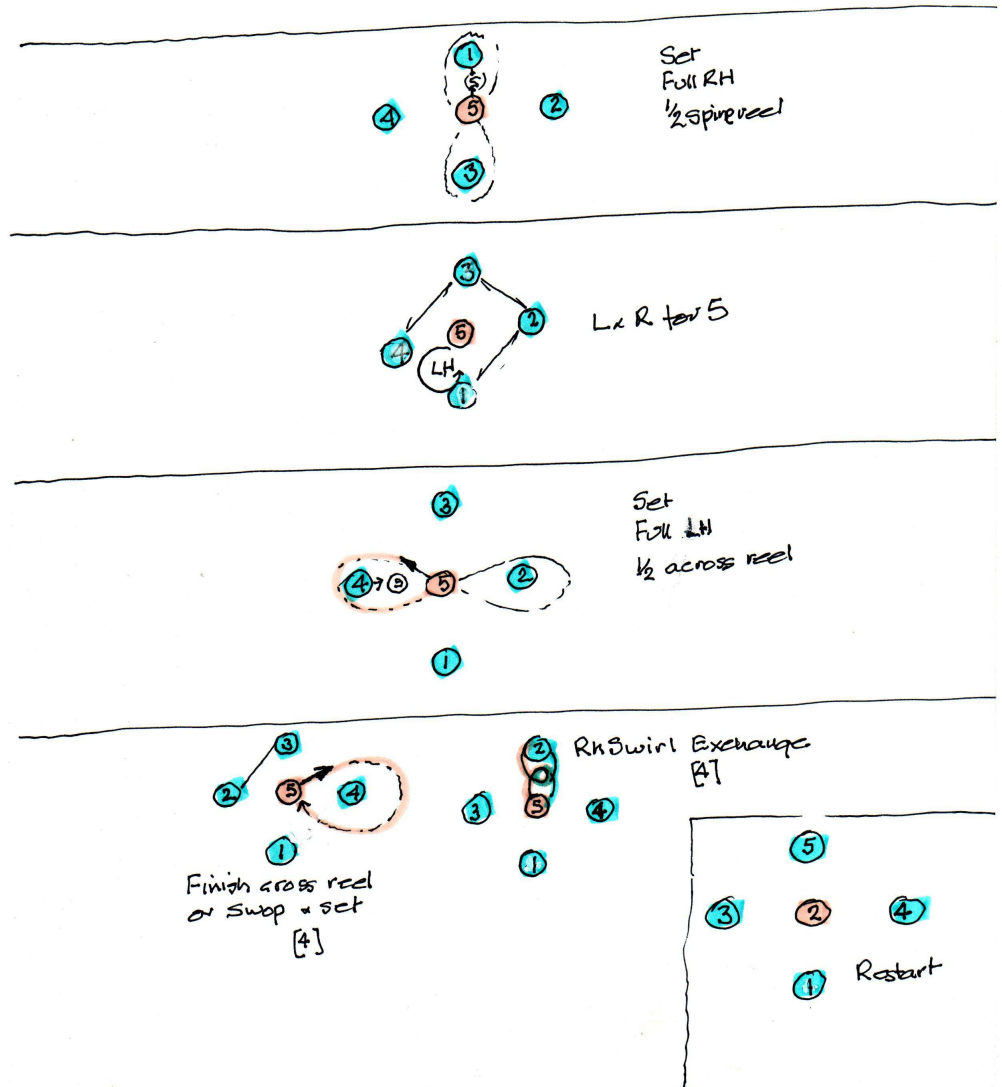 1
5
5
4
2
3
Set
Full RH
1/2 spine reel
3
2
5
4
LH
1
L & R for 5
3
4
5
5
2
1
Set
Full LH
1/2 across reel
3
2
5
4
1
Finish cross reel
or swop & set
[4]
2
3
5
4
1
Rh Swirl Exchange
[4]
5
3
2
4
1
Restart